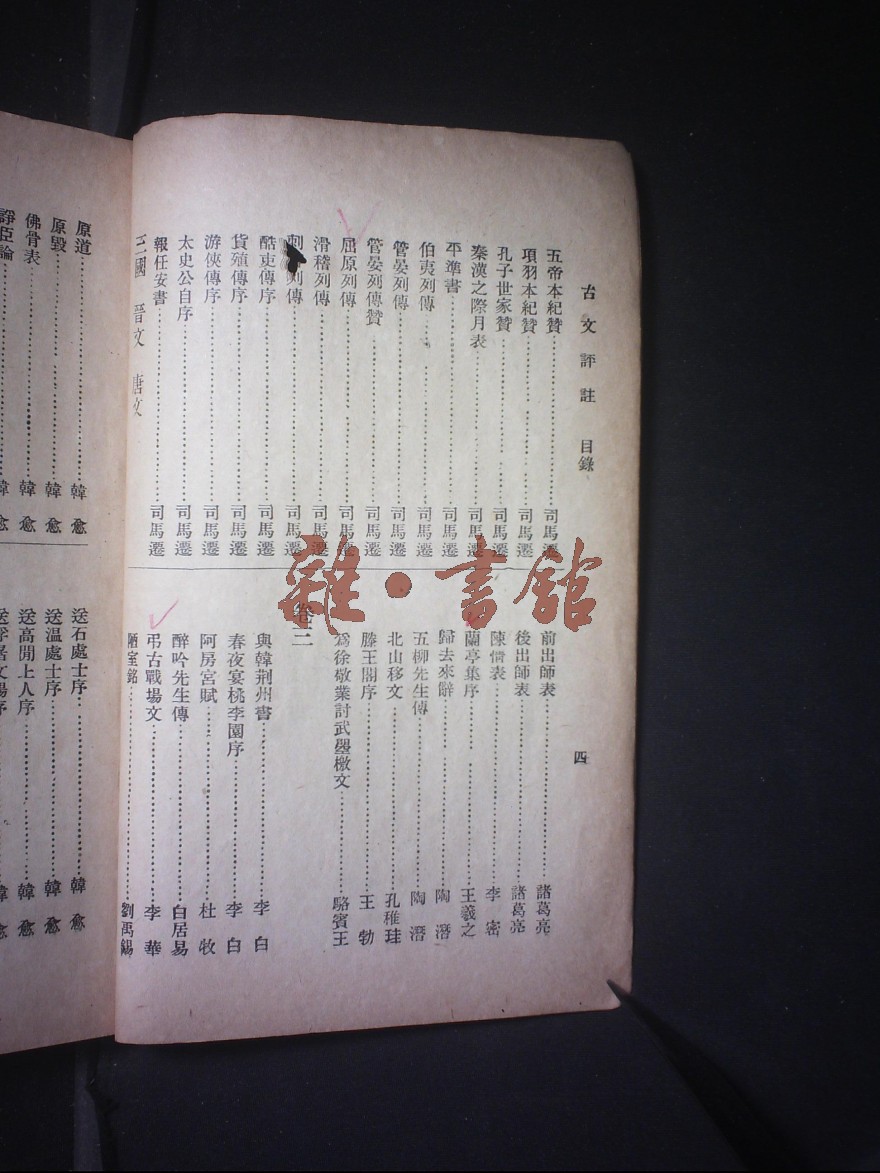 古文評註 目錄
四
五帝本紀贊 司馬遷
項羽本紀贊 司馬遷
孔子世家贊 司馬遷
秦漢之際月表 司馬遷
平準書 司馬遷
伯夷列傳 司馬遷
管晏列傳 司馬遷
管晏列傳贊 司馬遷
屈原列傳 司馬遷
滑稽列傳 司馬遷
刺 列傳 司馬遷
酷吏傳序 司馬遷
貨殖傳序 司馬遷
游俠傳序 司馬遷
太史公自序 司馬遷
報任安書 司馬遷
三國 晉文 唐文
前出師表 諸葛亮
後出師表 諸葛亮
陳情表 李密
蘭亭集序 王羲之
歸去來辭 陶潛
五柳先生傳 陶潛
北山移文 孔稚珪
滕王閣序 王勃
爲徐敬業討武曌檄文 駱賓王
卷三
與韓荆州書 李白
春夜宴桃李園序 李白
阿房宮賦 杜牧
醉吟先生傳 白居易
弔古戰場文 李華
陋室銘 劉禹錫
原道 韓愈
原毀 韓愈
佛骨表 韓愈
諍臣論 韓愈
送石處士序 韓愈
送温處士序 韓愈
送高閒上人序 韓愈
雜·書館